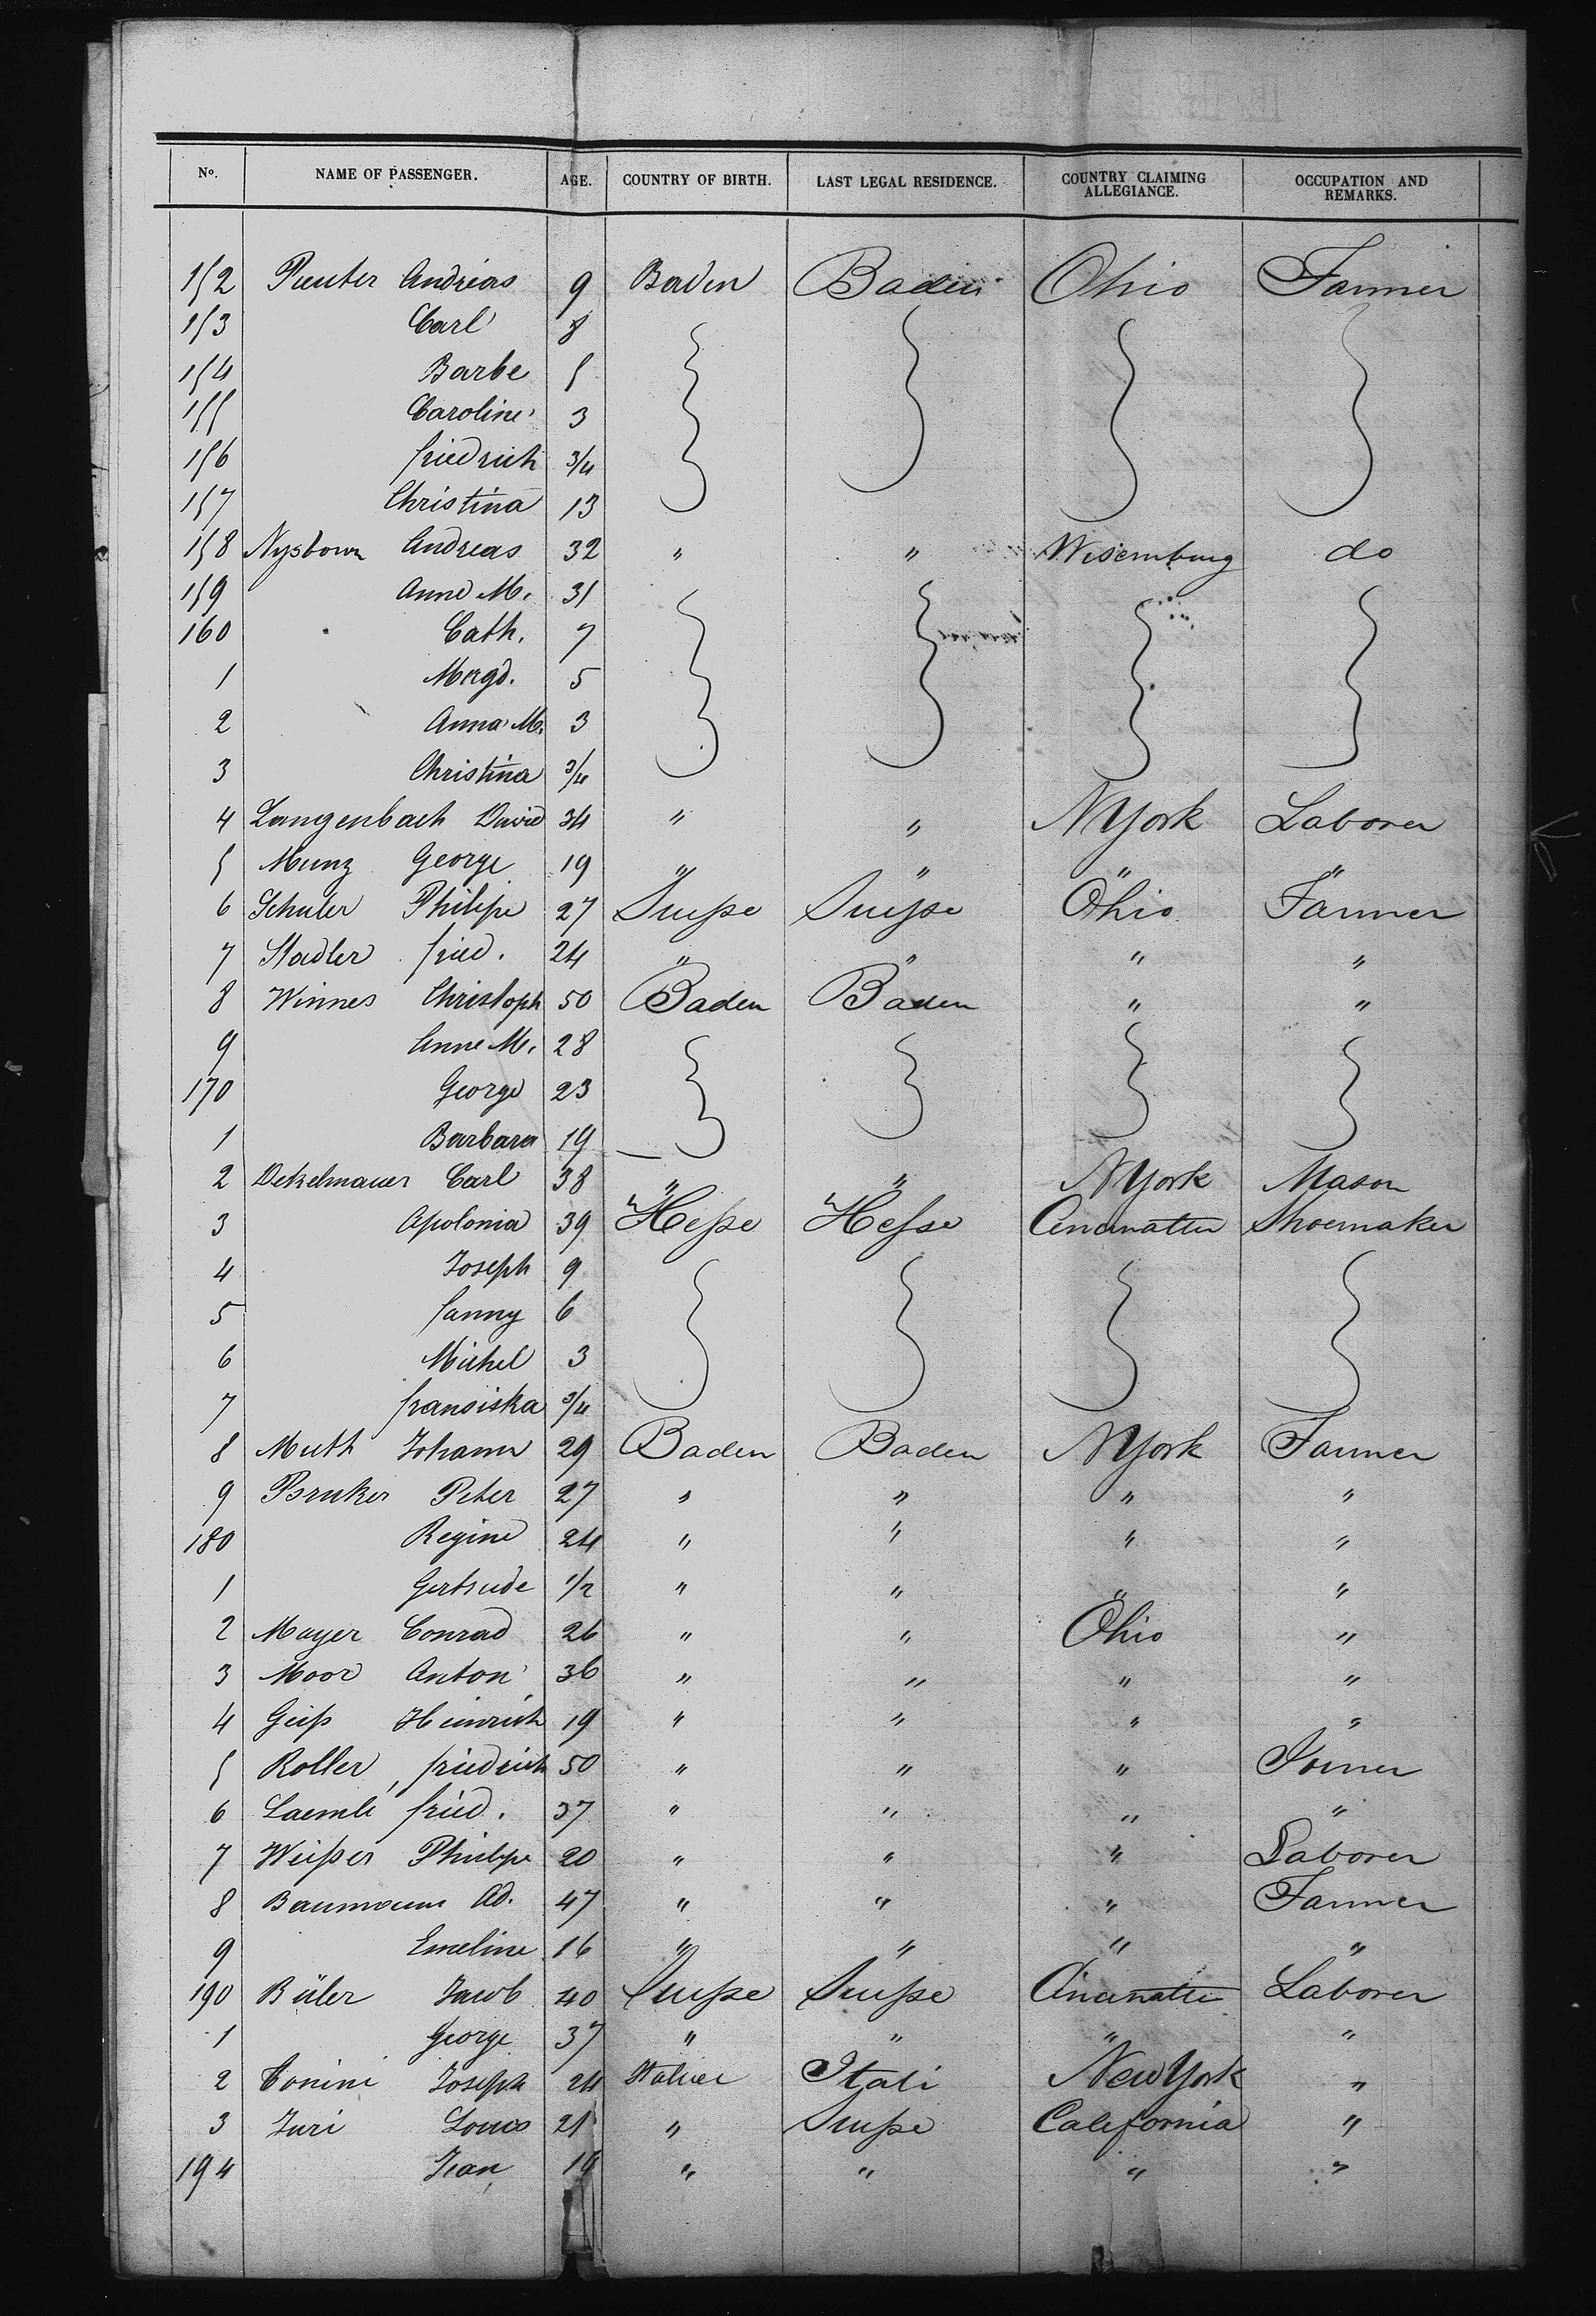 No. NAME OF PASSENGER. AGE. COUNTRY OF BIRTH. LAST LEGAL RESIDENCE. COUNTRY CLAIMING ALLEGIANCE. OCCUPATION AND REMARKS.
152 Andreas 9 Baden Baden Ohio Farmer
153 Carl 8
154 Barbe 5
155 Caroline 3
156 friedrich 3/4
157 Christina 13
158 Andreas 32 " " do
159 Anne M. 31
160 Cath. 7
1 Margd. 5
2 Anna M. 3
3 Christina 3/4
4 Langenbach David 34 " " NYork Laborer
5 Munz George 19 " " " "
6 Schuler Philipe 27 Suisse Suisse Ohio Farmer
7 Stadler fried. 24 " " " "
8 Winnes Christoph 50 Baden Baden " "
9 Anne M. 28
170 George 23
1 Barbara 19
2 Dekelmauer Carl 38 " " NYork Mason
3 Apolonia 39 Hesse Hesse Cincinatti Shoemaker
4 Joseph 9
5 fanny 6
6 Michel 3
7 fransiska 3/4
8 Muth Johann 29 Baden Baden NYork Farmer
9 Bruker Peter 27 " " " "
180 Regine 24 " " " "
1 Gertrude 1/2 " " " "
2 Mayer Conrad 26 " " Ohio "
3 Moor Anton 36 " " " "
4 Geiss Heinrich 19 " " " "
5 Roller, friedrich 50 " " " Joiner
6 Laemle fried. 37 " " " "
7 Weisser Philipe 20 " " " Laborer
8 Baumann Ad. 47 " " " Farmer
9 Emeline 16 " " " "
190 Büler Jacob 40 Suisse Suisse Cincinatti Laborer
1 George 37 " " " "
2 Tonini Joseph 24 Itali New York "
3 Juri Louis 21 " Suisse California "
194 Jean 19 " " " "